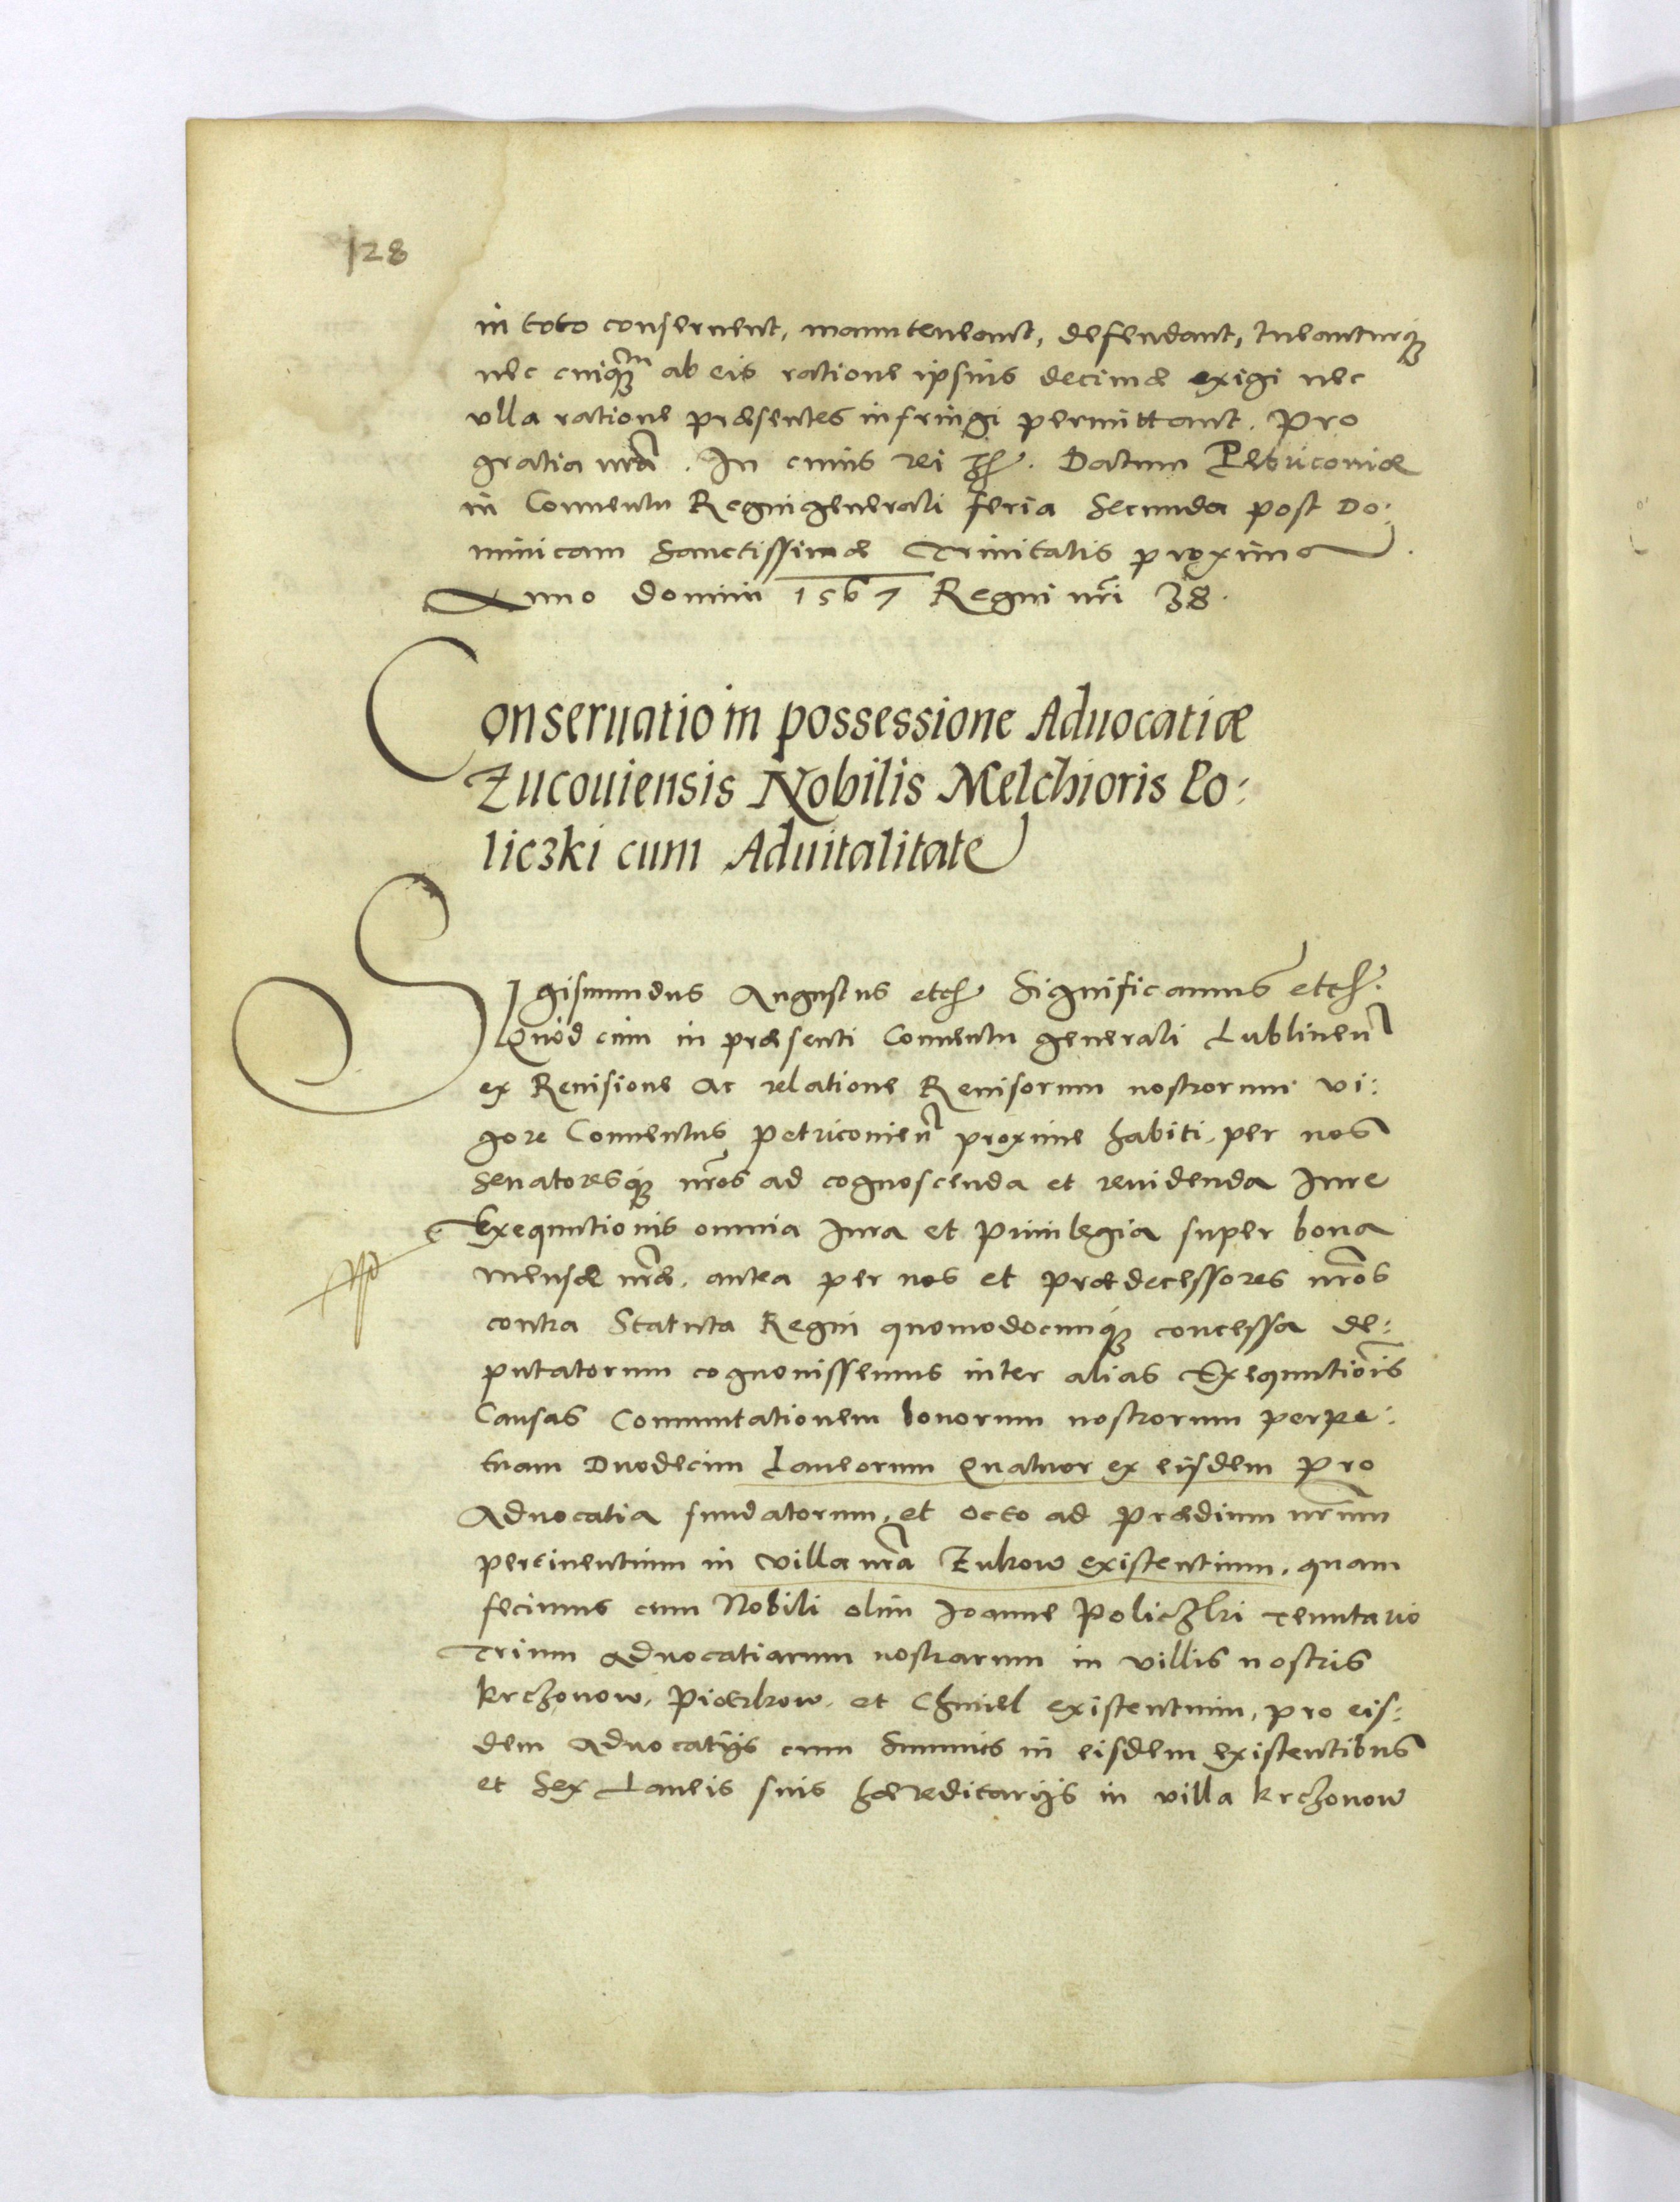 128
in toto conseruent, manuteneant, defendant, tueanturq́ue
nec cuiq̃ꝫ ab eis ratione ipsius decimæ exigi nec
vlla ratione præsentes infringi permittant. Pro
gratia nr̃a. In cuius rei etc. Datum Petricouiæ
in Conuentu Regni generali feria Secunda post Do:
minicam Sanctissimæ Trinitatis proxima.
Anno domini 1567 Regni nr̃i 38.
Conseruatio in possessione Aduocatiæ
Zucouiensis Nobilis Melchioris Po:
liczki cum Aduitalitate
Sigismundus Augustus etc. Significamus etc.
Quòd cùm in præsenti Conuentu generali Lublinen̄
ex Reuisione ac relatione Reuisorum nostrorum vi:
gore Conuentus petricouien̄ proxime habiti, per nos
Senatoresq́ꝫ nr̃os ad cognoscenda et reuidenda Iure
Exequutionis omnia Iura et Priuilegia super bona
mensæ nr̃æ, antea per nos et prædecessores nr̃os
contra Statuta Regni quomodocunq́ꝫ concessa de:
putatorum cognouissemus inter alias Exequutionis
Causas Commutationem bonorum nostrorum perpe:
tuam Duodecim Laneorum Quatuor ex eijsdem pro
Aduocatia fundatorum, et octo ad Prædium nr̃um
pertinentium in villa nr̃a Zukow existentium, quam
fecimus cum Nobili olim Joanne Policzki tenutario
Trium Aduocatiarum nostrarum in villis nostris
krczonow, Piaczkow, et Chmiel existentium, pro eis:
dem Aduocatijs cum Summis in eisdem existentibus
et Sex Laneis suis hæreditarijs in villa krczonow